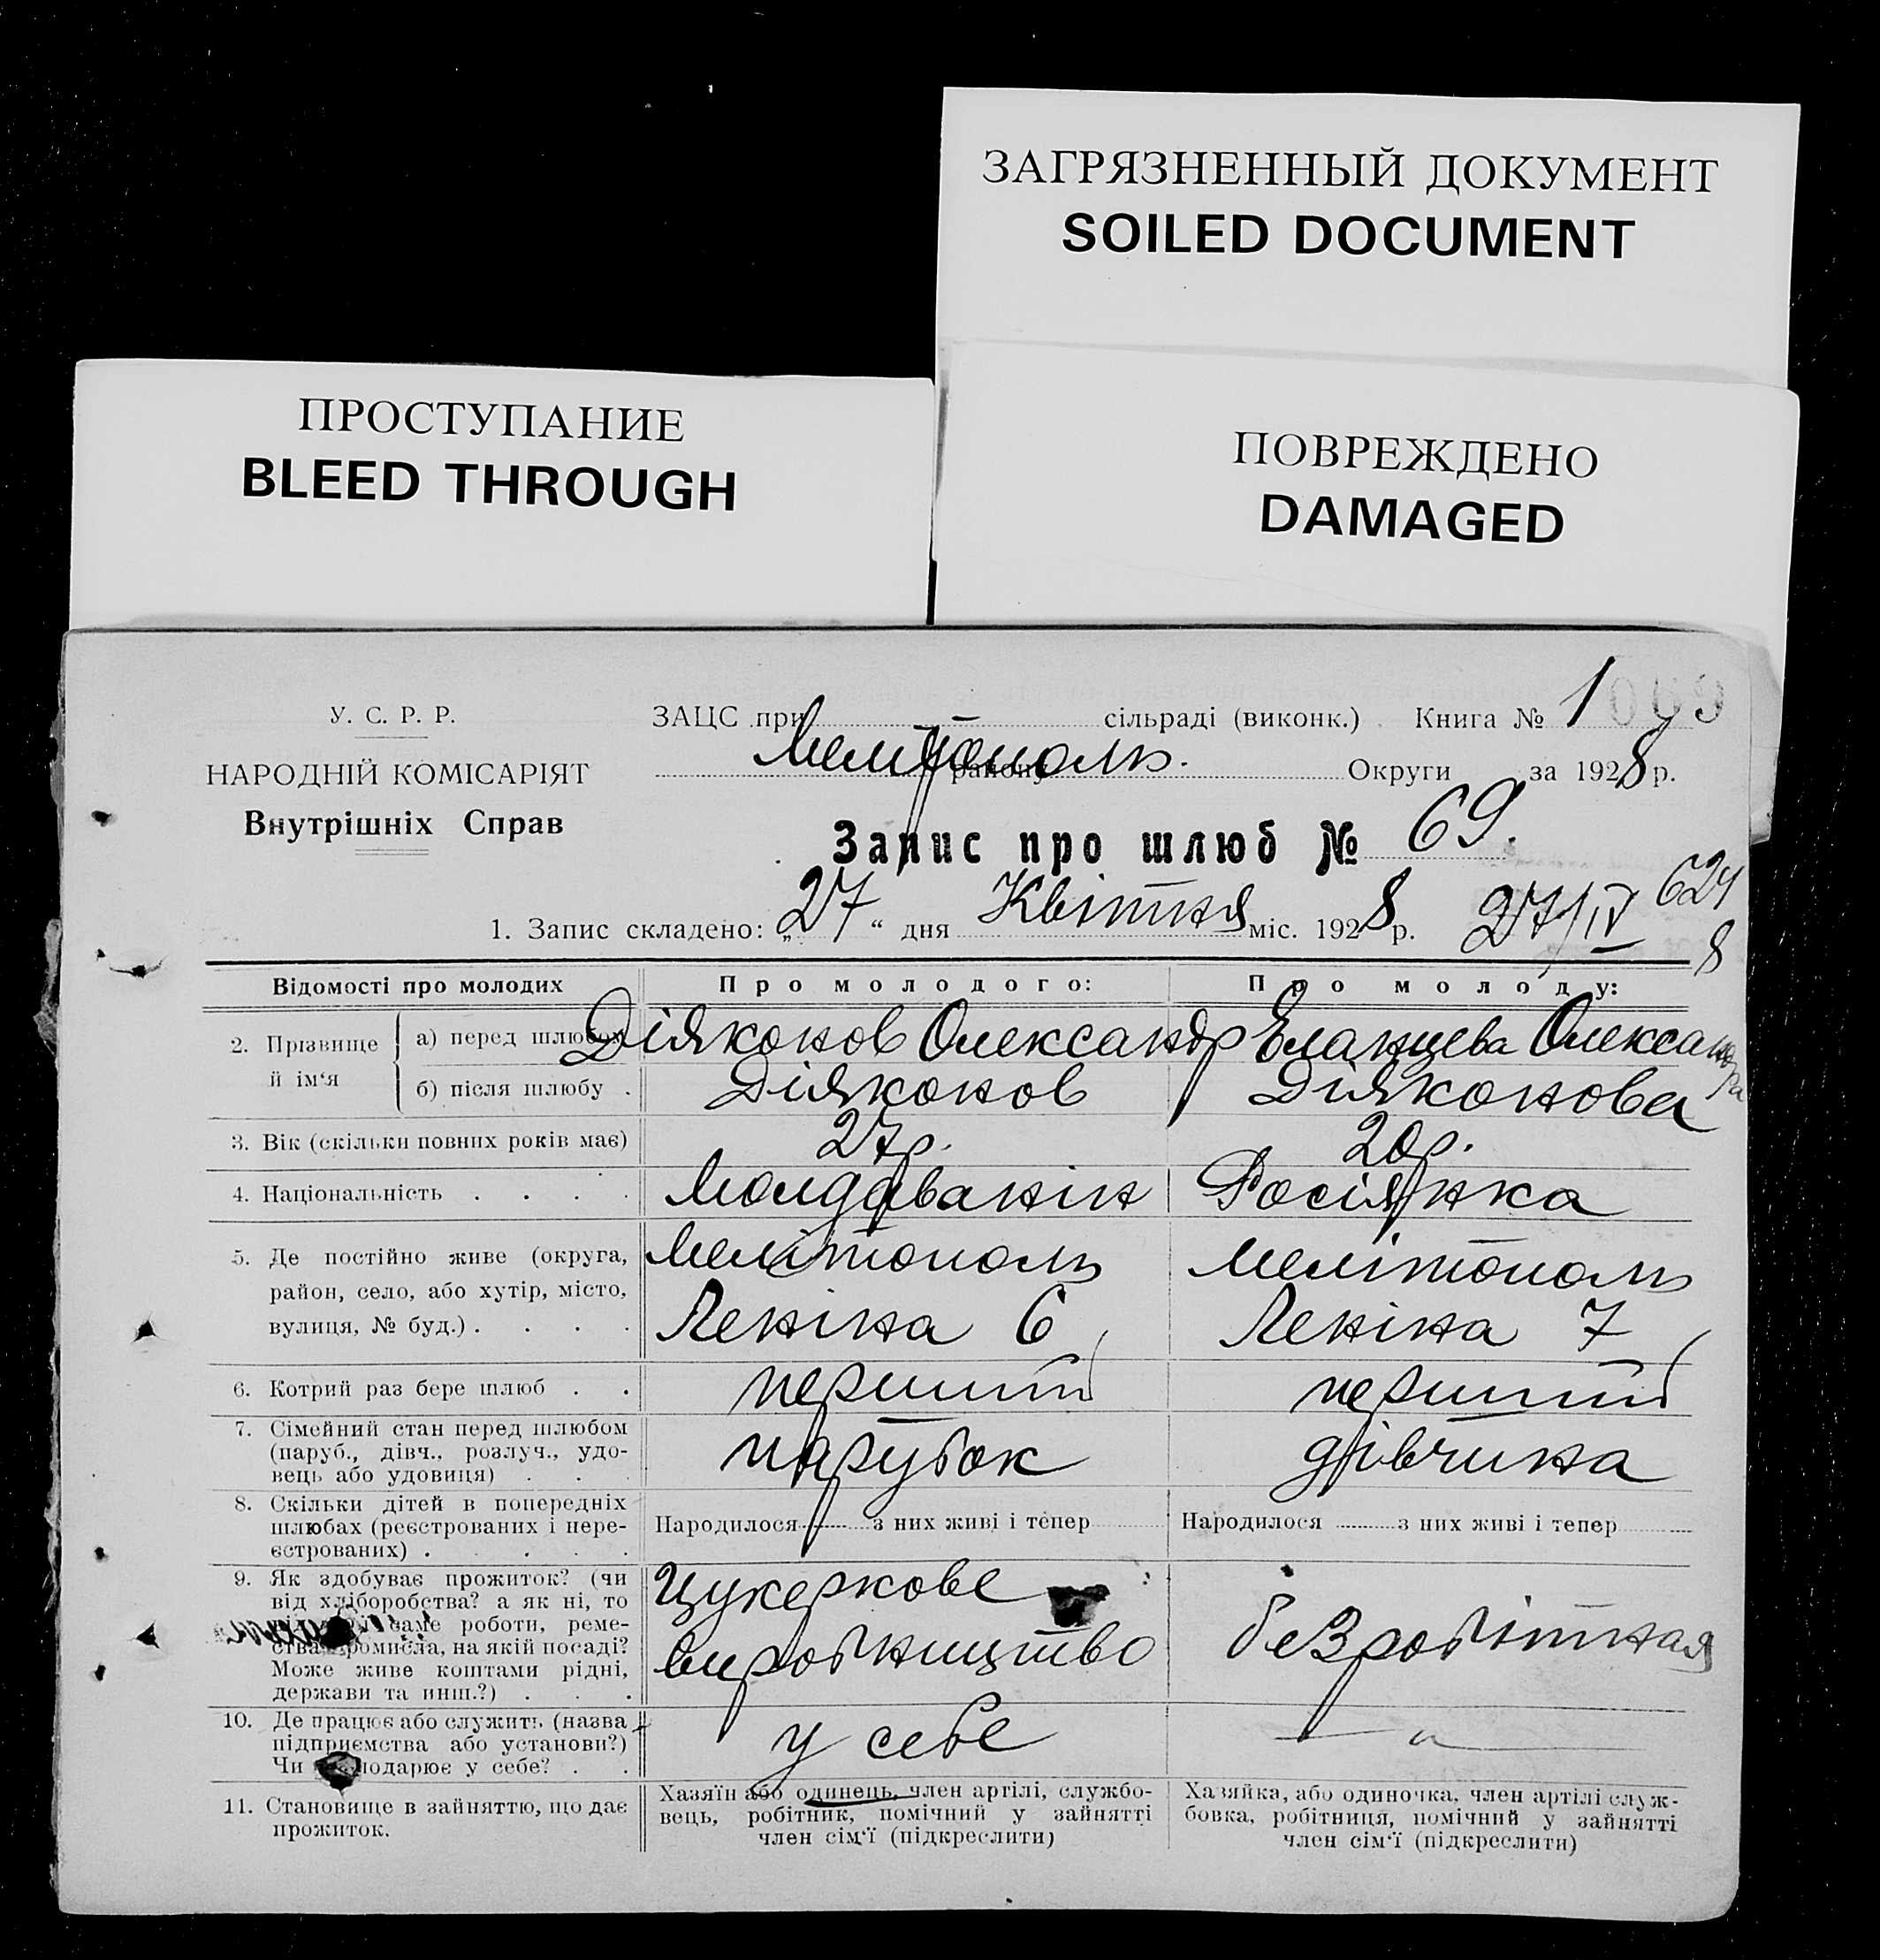 ЗАГРЯЗНЕННЫЙ ДОКУМЕНТ
SOILED DOCUMENT
ПРОСТУПАНИЕ
BLEED THROUGH
ПОВРЕЖДЕНО
DAMAGED
У. С. Р. Р.
НАРОДНІЙ КОМІСАРІЯТ
Внутрішніх Справ
ЗАЦС при сільраді (виконк.) Книга № 1
Мелітополь. району Округи за 1928 р.
Запис про шлюб № 69.
1. Запис складено: „27“ дня Квітня міс. 1928 р. 27/IV 8
624
Відомості про молодих Про молодого: Про молоду:
2. Прізвище й ім'я
а) перед шлюбом Діяконов Олександр Еланцева Олександра
б) після шлюбу . Діяконов Діяконова
3. Вік (скільки повних років має) 27р. 20р.
4. Національність . . . . Молдованін Росіянка
5. Де постійно живе (округа, район, село, або хутір, місто, вулиця, № буд.) . . . .
Мелітополь Мелітополь
Леніна 6 Леніна 7
6. Котрий раз бере шлюб . . перший перший
7. Сімейний стан перед шлюбом
(паруб., дівч., розлуч., удо-
вець або удовиця) . . . парубок дівчина
8. Скільки дітей в попередніх
шлюбах (реєстрованих і нере-
єстрованих) . . . . . Народилося з них живі і тепер Народилося з них живі і тепер
9. Як здобуває прожиток? (чи
від хліборобства? а як ні, то
саме роботи, реме-
ства, промисла, на якій посаді?
Може живе коштами рідні,
держави та инш.?) . . .
Цукеркове
виробництво безробітная
10. Де працює або служить (назва
підприємства або установи?)
Чи господарює у себе? . . у себе — " —
11. Становище в зайняттю, що дає
прожиток.
Хазяїн або одинець, член артілі, службо-
вець, робітник, помічний у зайнятті
член сім'ї (підкреслити)
Хазяйка, або одиночка, член артілі служ-
бовка, робітниця, помічний у зайнятті
член сім'ї (підкреслити)